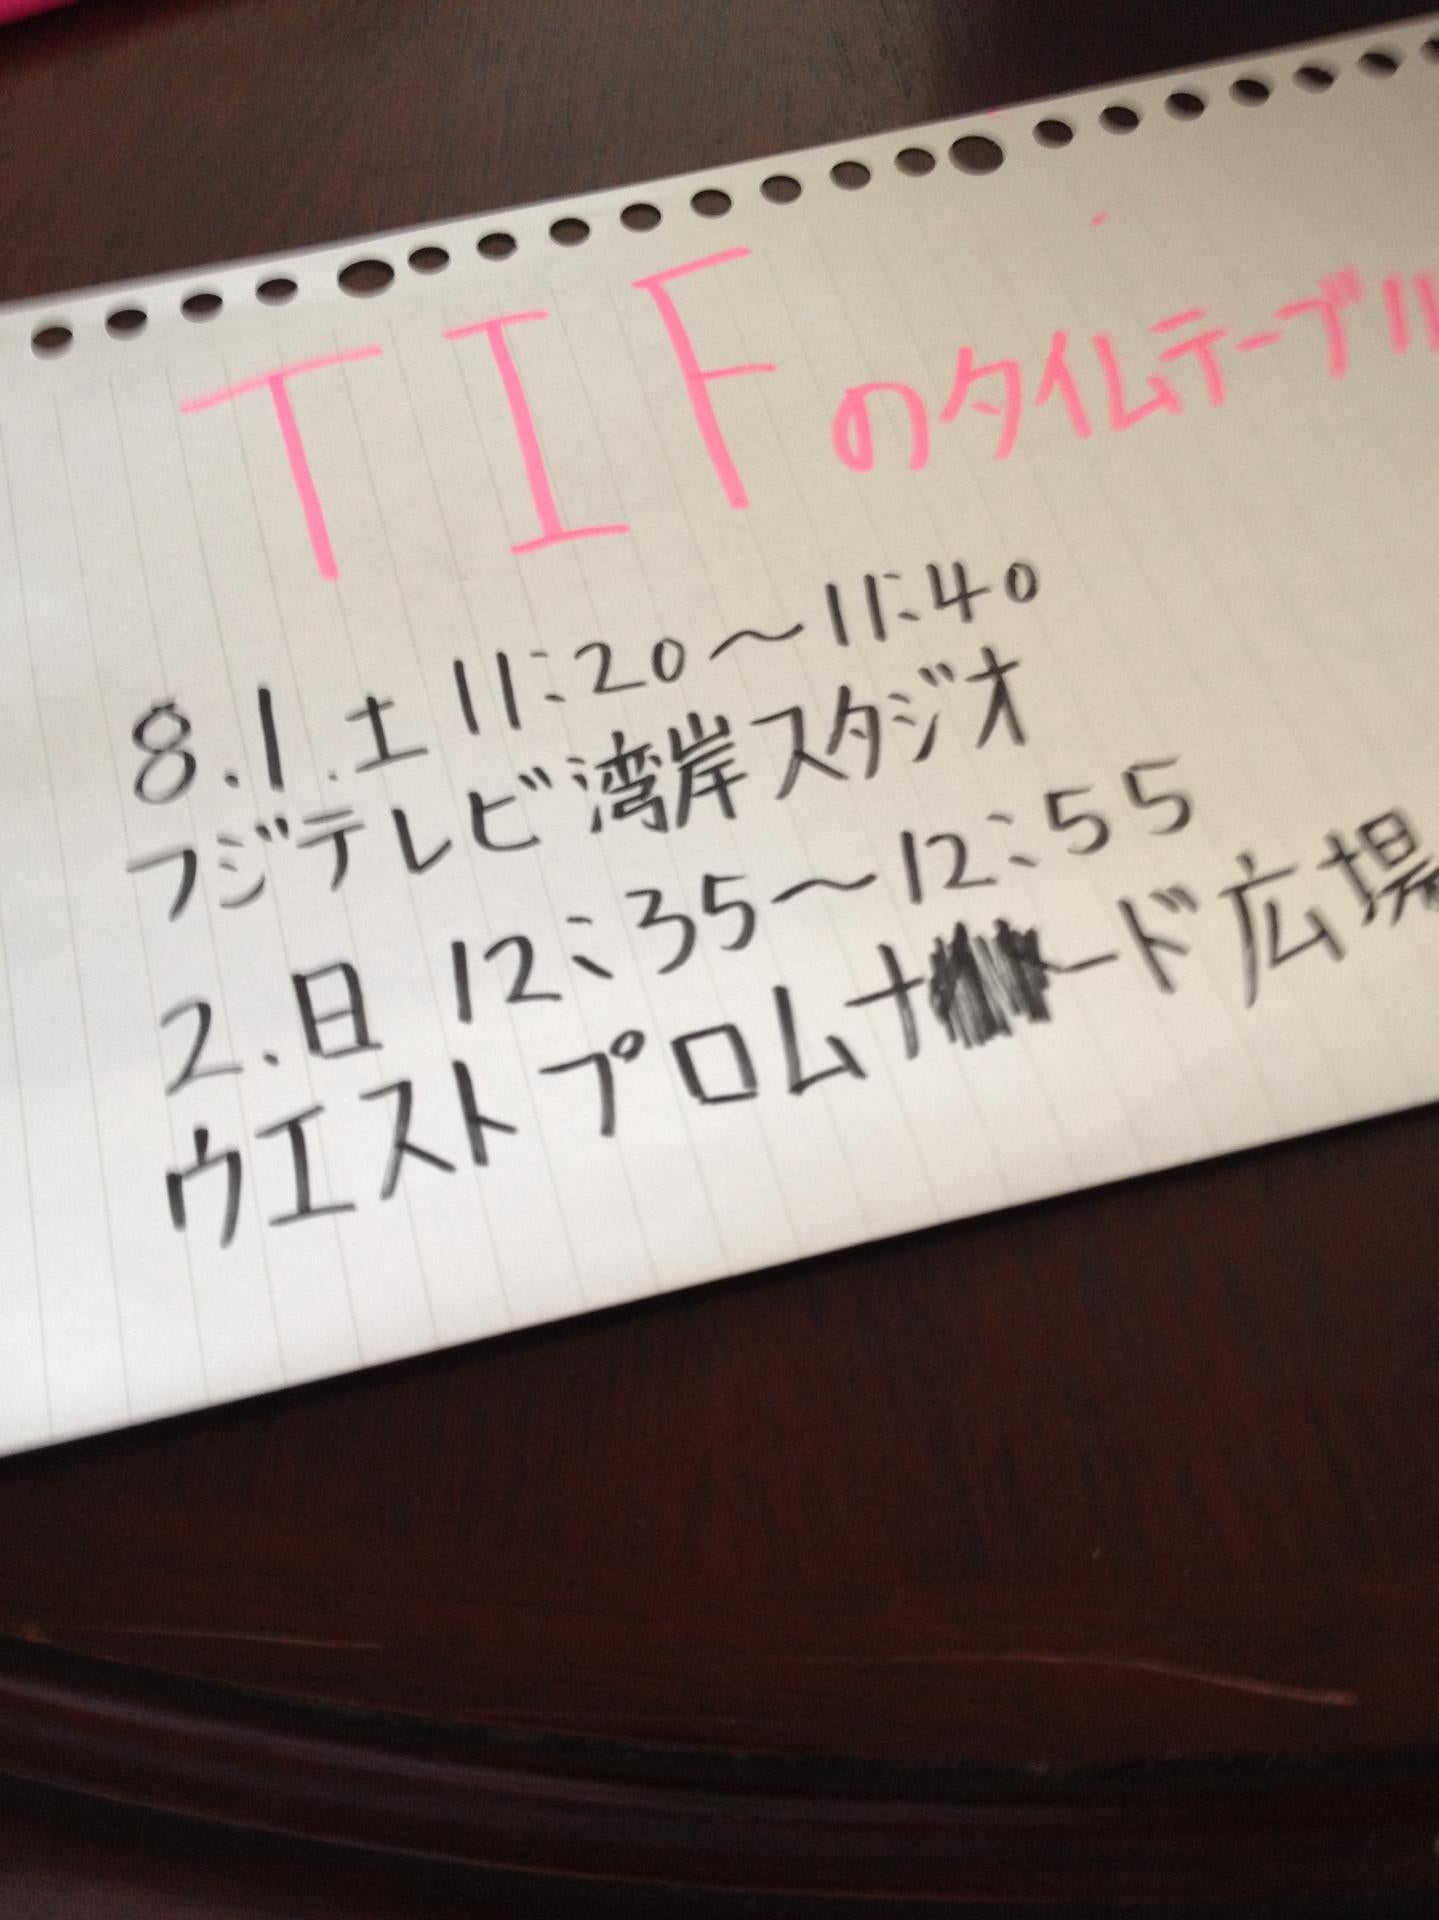 TIFのタイムテーブル
8.1.土 11:20〜11:40
フジテレビ湾岸スタジオ
2.日 12:35〜12:55
ウエストプロムナード広場